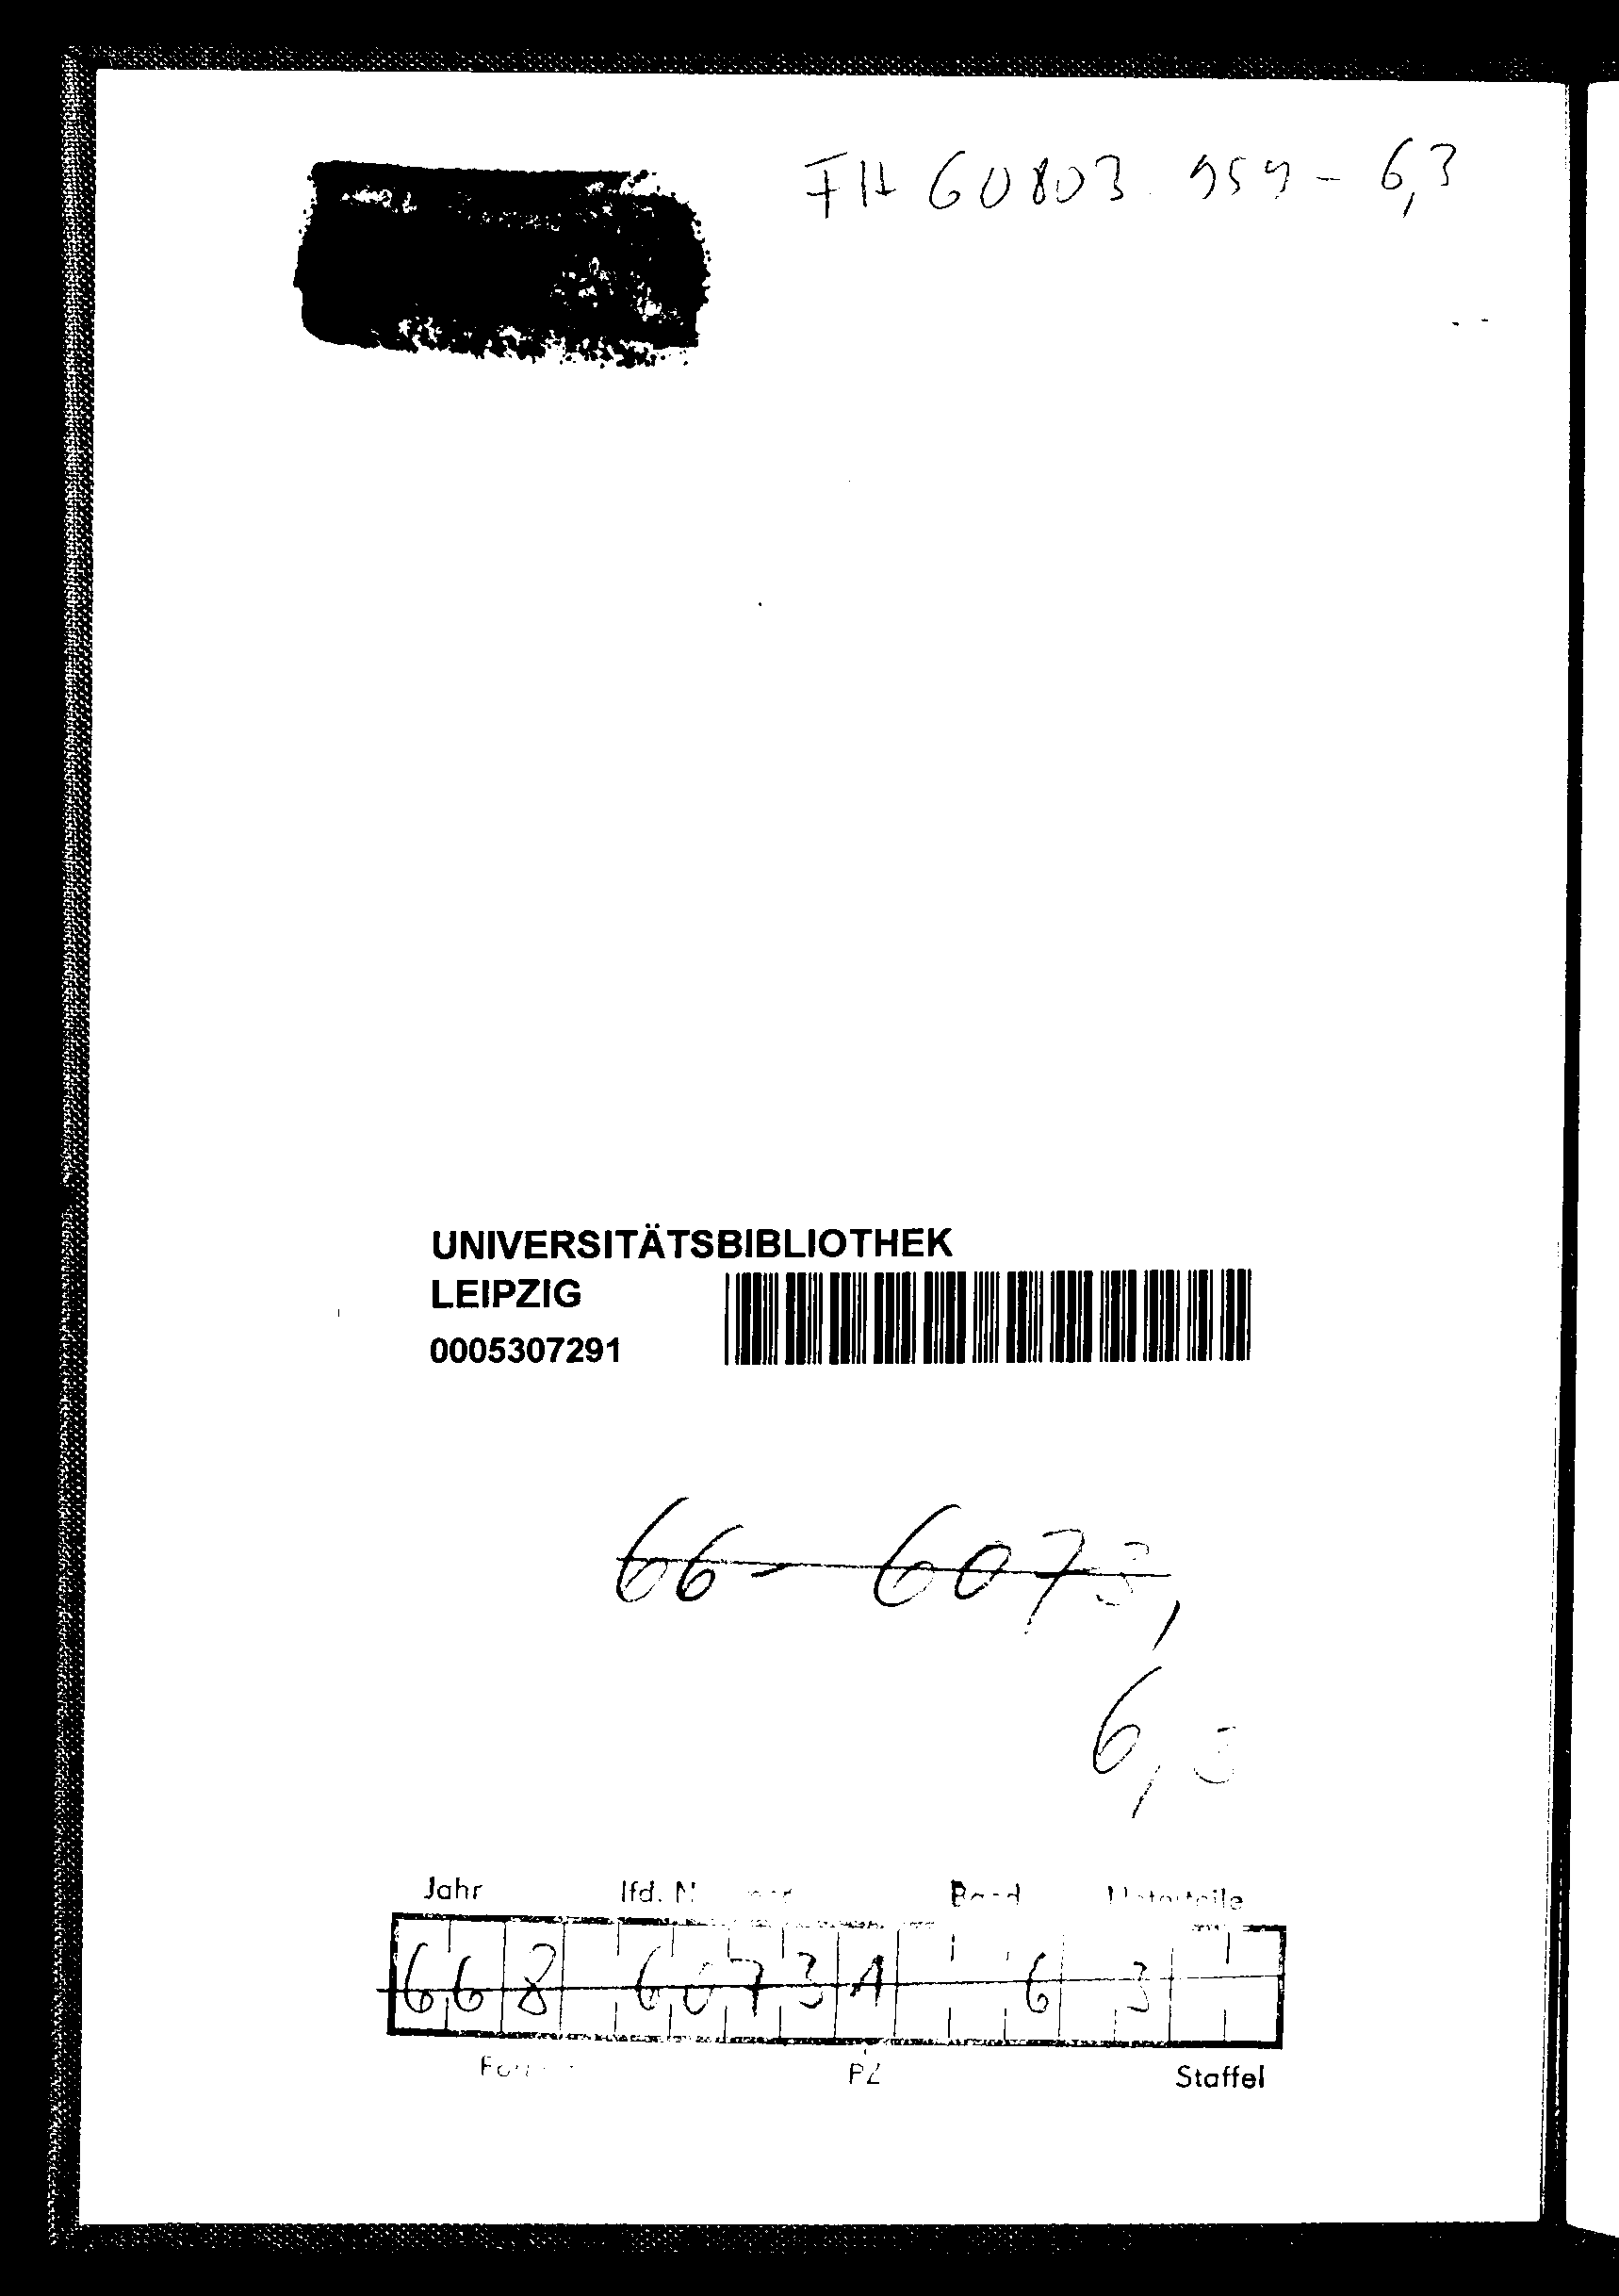 FH 60803 959 - 6,3
UNIVERSITÄTSBIBLIOTHEK
LEIPZIG
0005307291
66 - 6073,
6,3
Jahr lfd. Band Unterteile
6 6 8 6 0 7 3 1 6 3
PZ Staffel